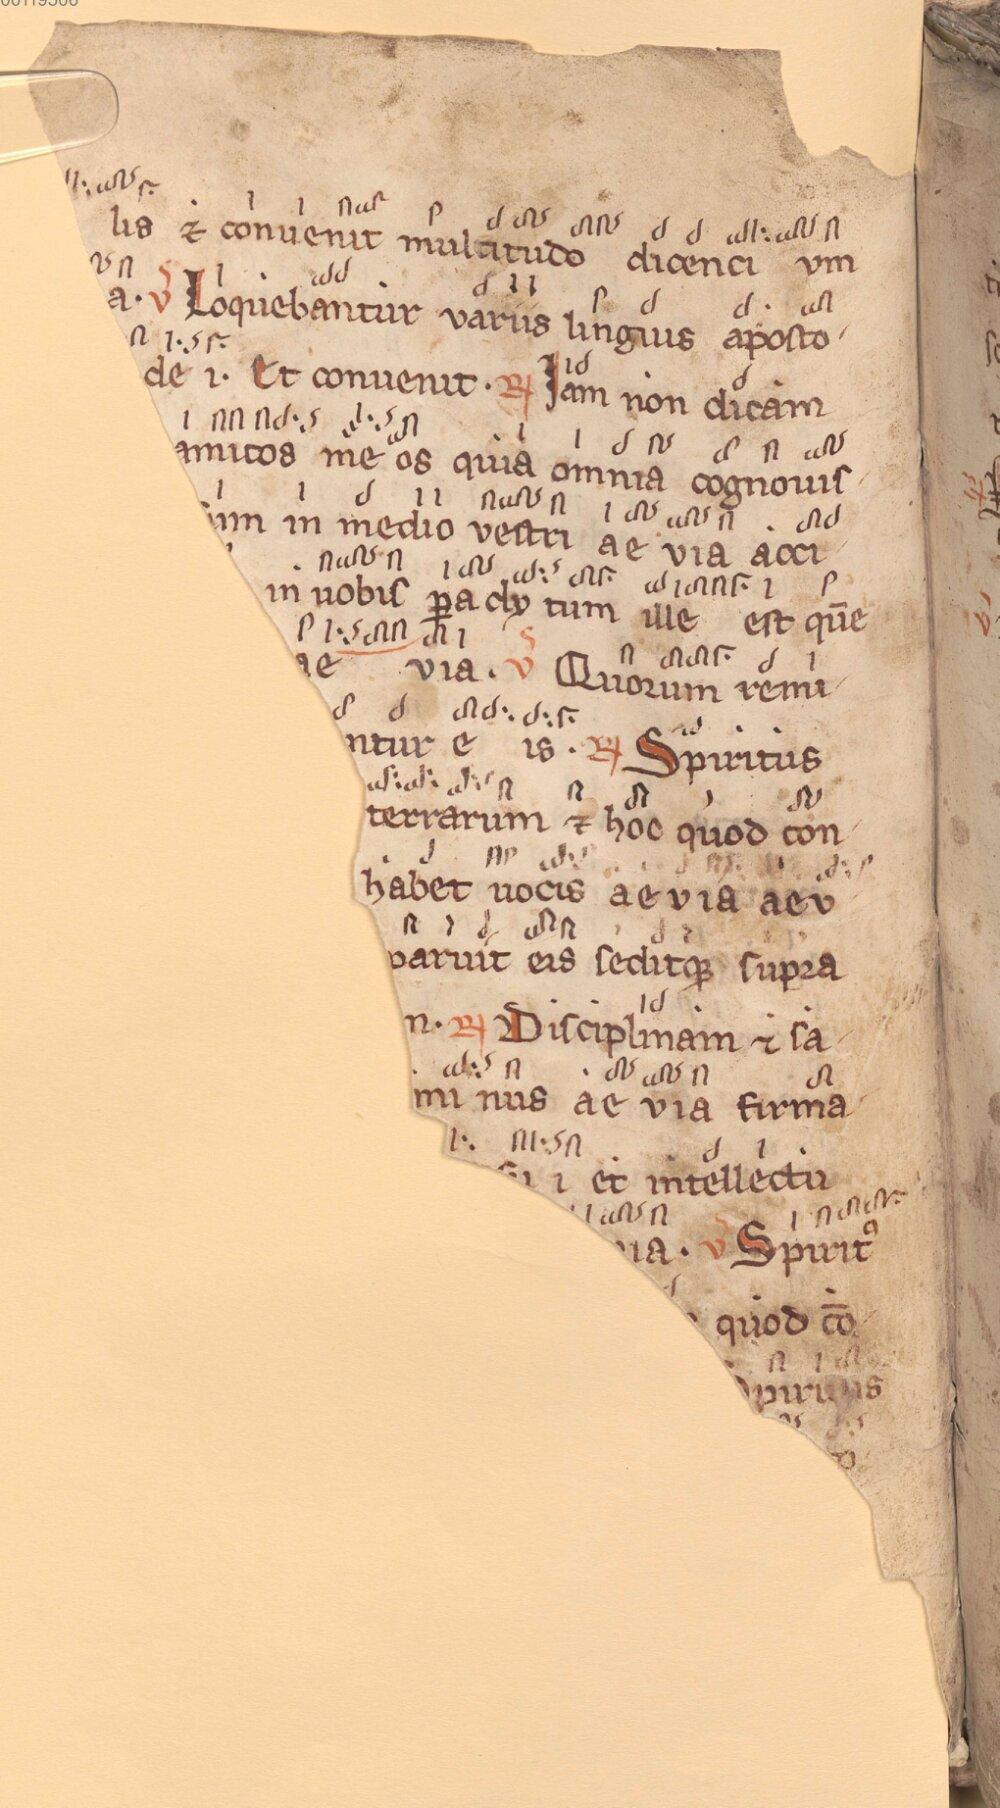 lis ⁊ conuenit multitudo dicenci vm
a. v Loquebantur variis linguis aposto
de i. Et conuenit. R Iam non dicam
amicos me os quia omnia cognouis
sum in medio vestri ae via acci
in uobis pa cly tum ille est que̅
ae via. v Quorum remi
ntur e is. R Spiritus
terrarum ⁊ hoc quod con
habet uocis aevia aev
paruit eis seditqꝫ supra
n. R Disciplinam ⁊ sa
mi nus ae via firma
i et intellectu
uia. v Spiritꝰ
quod co̅
Spiritus